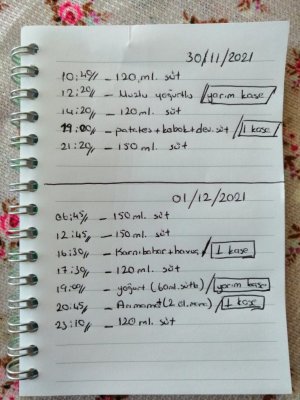 30/11/2021
10:45 — 120 ml. süt
12:20 — Muzlu yoğurtlu / yarım kase
14:20 — 120 ml süt
19:00 — patates + kabak + dev. süt / 1 kase
21:20 — 150 ml. süt
01/12/2021
06:45 — 150 ml. süt
12:45 — 150 ml. süt
16:30 — Karnıbahar + havuç / 1 kase
17:30 — 120 ml. süt
19:00 — yoğurt (60 ml. sütlü) / yarım kase
20:45 — (2 öl. / 1 kase
23:10 — 120 ml. süt